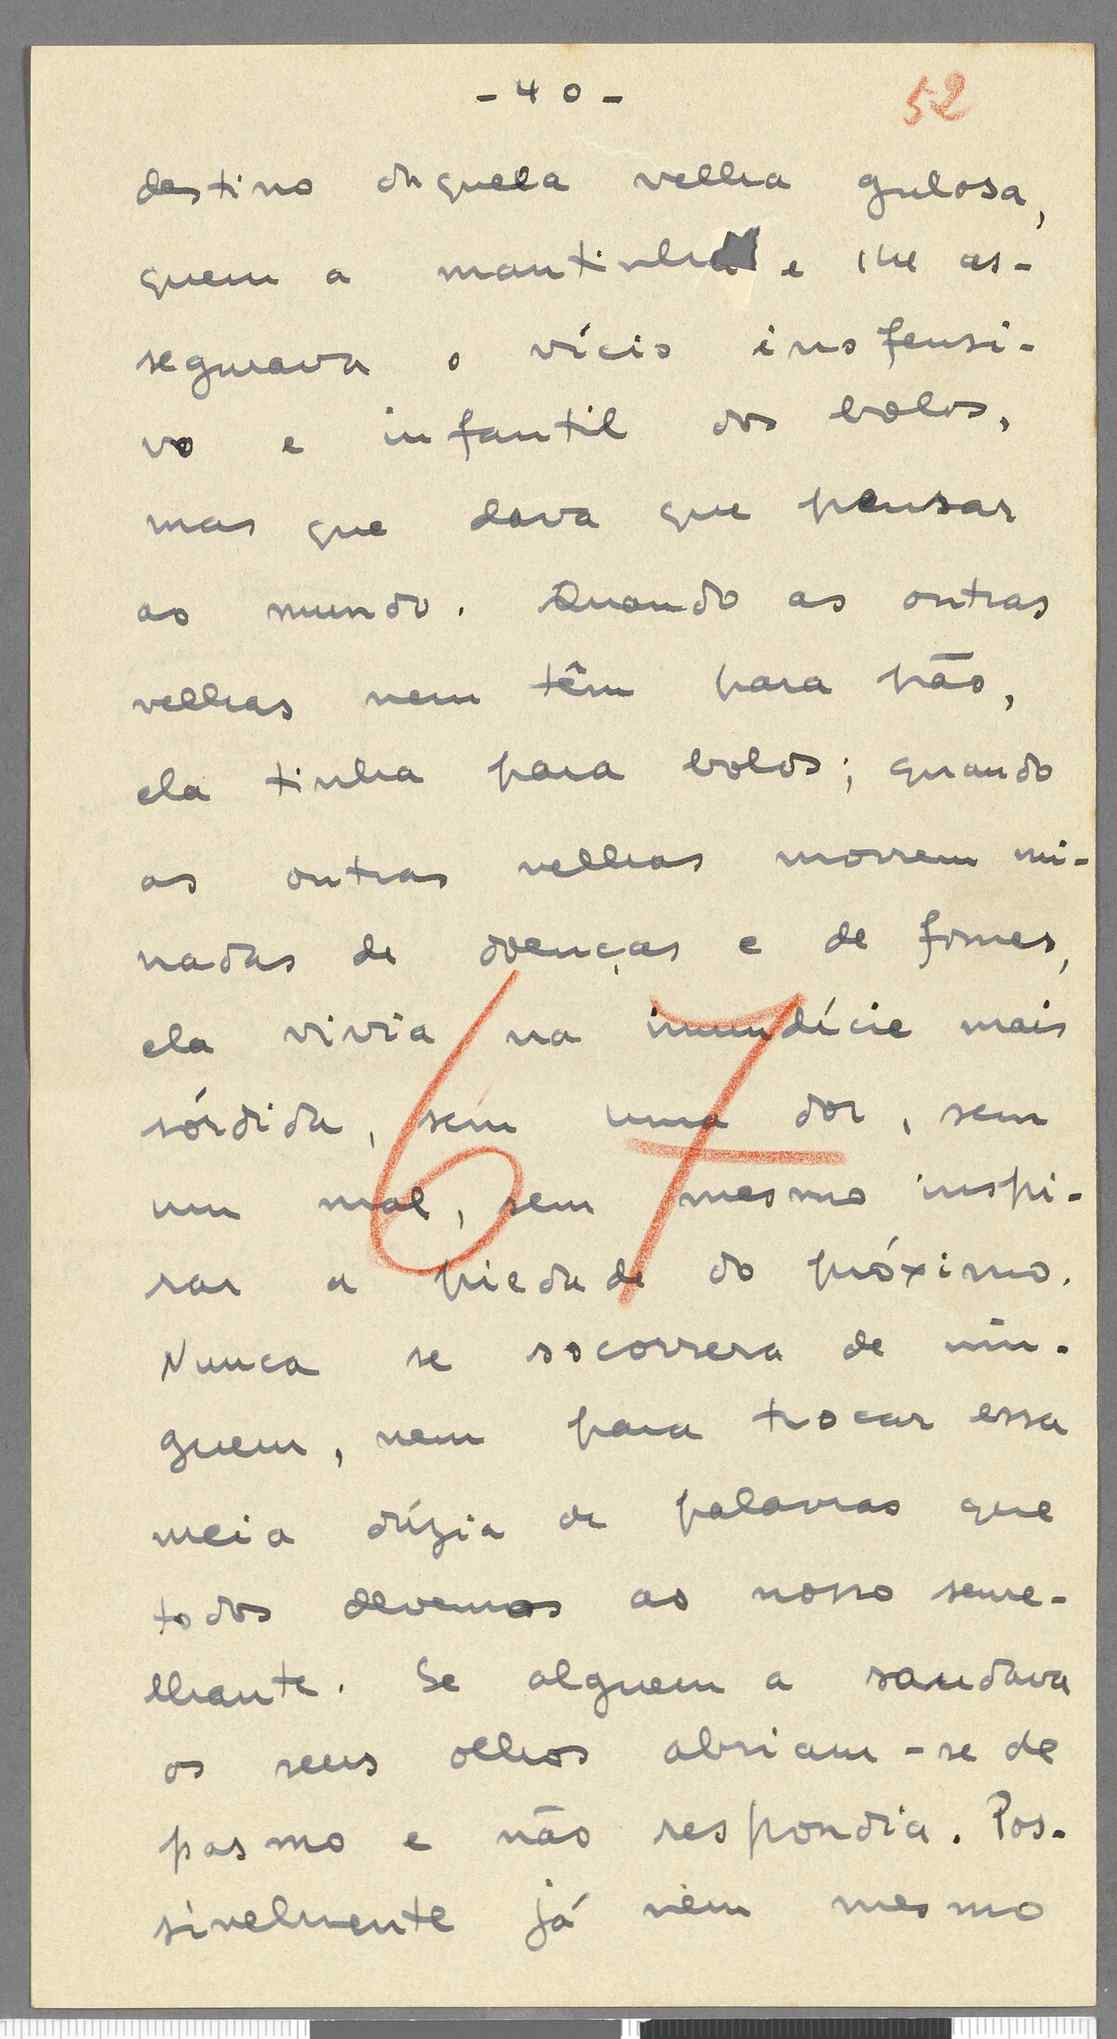 - 40 - 52
destino daquela velha gulosa,
quem a mantinha e lhe as-
segurava o vício inofensi-
vo e infantil dos bolos,
mas que dava que pensar
ao mundo. Quando as outras
velhas nem têm para pão,
ela tinha para bolos; quando
as outras velhas morrem mi-
nadas de doenças e de fomes,
ela vivia na imundície mais
sórdida, sem uma dor, sem
um mal, sem mesmo inspi-
rar a piedade do próximo.
Nunca se socorrera de nin-
guem, nem para trocar essa
meia dúzia de palavras que
todos devemos ao nosso seme-
lhante. Se alguem a saudava
os seus olhos abriam-se de
pasmo e não respondia. Pos-
sivelmente já nem mesmo
67